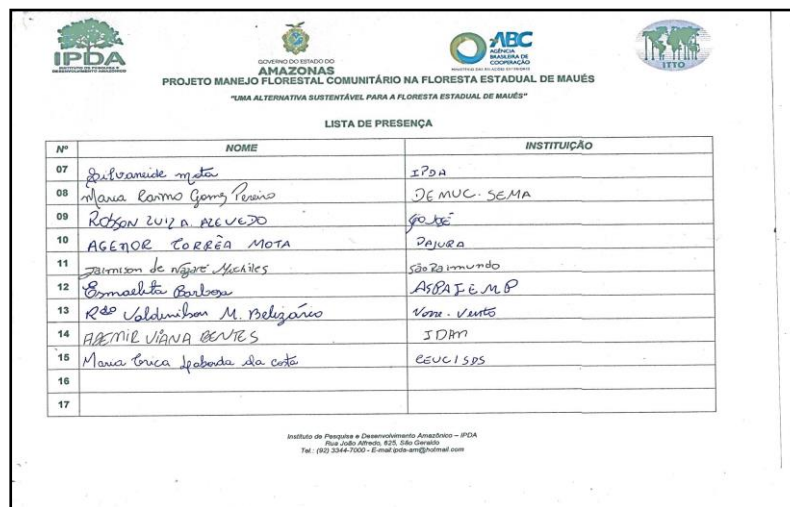 IPDA
INSTITUTO DE PESQUISA E
DESENVOLVIMENTO AMAZÔNICO
GOVERNO DO ESTADO DO
AMAZONAS
ABC
AGÊNCIA
BRASILEIRA DE
COOPERAÇÃO
ITTO
PROJETO MANEJO FLORESTAL COMUNITÁRIO NA FLORESTA ESTADUAL DE MAUÉS
"UMA ALTERNATIVA SUSTENTÁVEL PARA A FLORESTA ESTADUAL DE MAUÉS"
LISTA DE PRESENÇA
Nº NOME INSTITUIÇÃO
07 Silvaneide mota IPDA
08 Maria Carmo Gomes Pereira DEMUC. SEMA
09 ROBSON LUIZ A. AZEVEDO
10 AGENOR CORRÊA MOTA PAJURA
11 de Nazaré Michiles São Raimundo
12 Esmaelita Barbosa ASPAFEMP
13 Rdo Valdenilson M. Belizário Vento
14 VIANA BENTES IDAM
15 Maria Erica da costa CEUC/SDS
16
17
Instituto de Pesquisa e Desenvolvimento Amazônico – IPDA
Rua João Alfredo, 625, São Geraldo
Tel.: (92) 3344-7000 - E-mail:ipda-am@hotmail.com